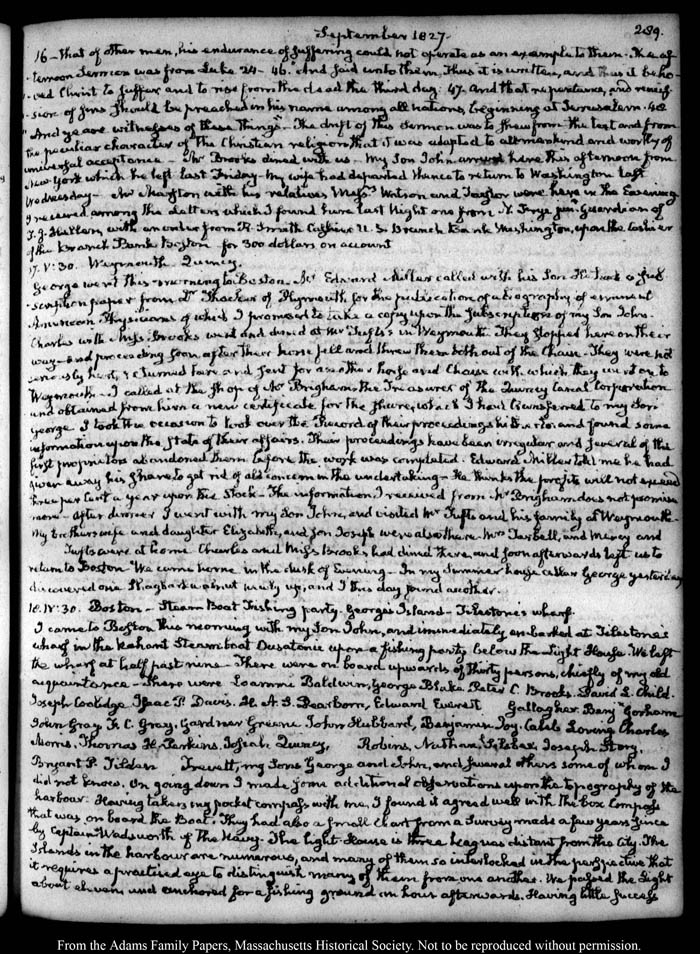 September 1827.
289.
16 - that of other men, his endurance of suffering could not operate as an example to them. The af
ternoon Sermon was from Luke 24 - 46. And said unto them, Thus it is written, and thus it beho-
ved Christ to suffer and to rise from the dead the third day: 47. And that repentance, and remis-
sion of sins should be preached in his name among all nations, beginning at Jerusalem. 48
"And ye are witnesses of these things." The drift of this Sermon was to shew from the text and from
the peculiar character of the Christian religion that it was adapted to all mankind and worthy of
universal acceptance - Mr Brooks dined with us - My Son John arrived here this afternoon from
New York which he left last Friday - My wife had departed thence to return to Washington last
Wednesday - Mr with his relatives Messrs Watson and Taylor were here in the Evening
I received among the Letters which I found here last Night one from N. Frye junr Guardian of
T. J. Hellen, with an order from R. Smith Cashier U. S. Branch Bank Washington, upon the Cashier
of the Branch Bank Boston for 300 dollars on account
17. V:30. Weymouth Quincy.
George went this morning to Boston. Mr Edward Miller called with his Son He a sub
scription paper from Dr Thacher of Plymouth for the publication of a biography of eminent
American Physicians of which I promised to take a copy upon the Subscription of my Son John.
Charles with Miss Brooks went and dined at Mr Tufts's in Weymouth. They stopped here on their
way - and proceeding soon after their horse fell and threw them both out of the Chaise. They were not
seriously hurt, returned here and sent for another horse and Chaise with which they went on to
Weymouth - I called at the shop of Mr Brigham the Treasurer of the Quincy Canal Corporation
and obtained from him a new certificate for the share, which I had transferred to my Son
George. I took this occasion to look over the Record of their proceedings hitherto, and found some
information upon the state of their affairs. Their proceedings have been irregular and several of the
first proprietors abandoned them before the work was completed. Edward Miller told me he had
given away his share to get rid of all concern in the undertaking - He thinks the profits will not exceed
three per Cent a year upon the Stock - The information I received from Mr Brigham does not promise
more - After dinner I went with my Son John, and visited Mr Tufts and his family at Weymouth.
My brothers wife and daughter Elizabeth, and Son Joseph were also there. Mrs Tarbell, and Mercy and
Tufts were at home Charles and Miss Brooks had dined there, and soon afterwards left us to
return to Boston. We came home in the dusk of Evening - In my Summer house George yesterday
discovered one Shagbark Walnut newly up, and I this day found another.
18. IV:30. Boston - Steam Boat Fishing party. Georges Island - Tileston's wharf.
I came to Boston this morning with my Son John, and immediately embarked at Tilestone's
wharf in the Nahant Steamboat Ousatonic upon a fishing party below the Light House. We left
the wharf at half past nine - There were on board upwards of thirty persons, chiefly of my old
acquaintance - There were Loammi Baldwin, George Blake, Peter C. Brooks, David L. Child.
Joseph Coolidge, Isaac P. Davis. H. A. S. Dearborn, Edward Everett Gallagher, Benj Gorham
John Gray, F. C. Gray, Gardner Greene, John Hubbard, Benjamin Joy, Caleb Loring, Charles
Morris, Thomas H. Perkins, Josiah Quincy, Robins, Nathan Silsbee, Joseph Story,
Bryant P. Tilden Trevett, my Sons George and John, and several others some of whom I
did not know. On going down I made some additional observations upon the topography of the
harbour. Having taken my pocket compass with me, I found it agreed well with the box Compass
that was on board the Boat. They had also a small Chart from a Survey made a few years since
by Captain Wadsworth of the Navy. The Light-House is three leagues distant from the City. The
Islands in the harbour are numerous, and many of them so interlocked in the perspective that
it requires a practised eye to distinguish many of them from one another. We passed the Light
about eleven, and anchored for a fishing ground an hour afterwards. Having little success
From the Adams Family Papers, Massachusetts Historical Society. Not to be reproduced without permission.